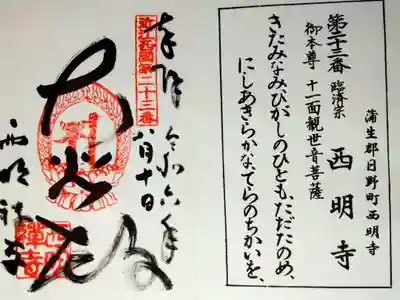 蒲生郡日野町西明寺
第二十三番 臨済宗 西明寺
御本尊 十一面観世音菩薩
きたみなみひがしのひとも、ただたのめ、
にしあきらかなてらのちかいを、
奉拝 令和六年
八月十日
近江西國第二十三番
西明禅寺